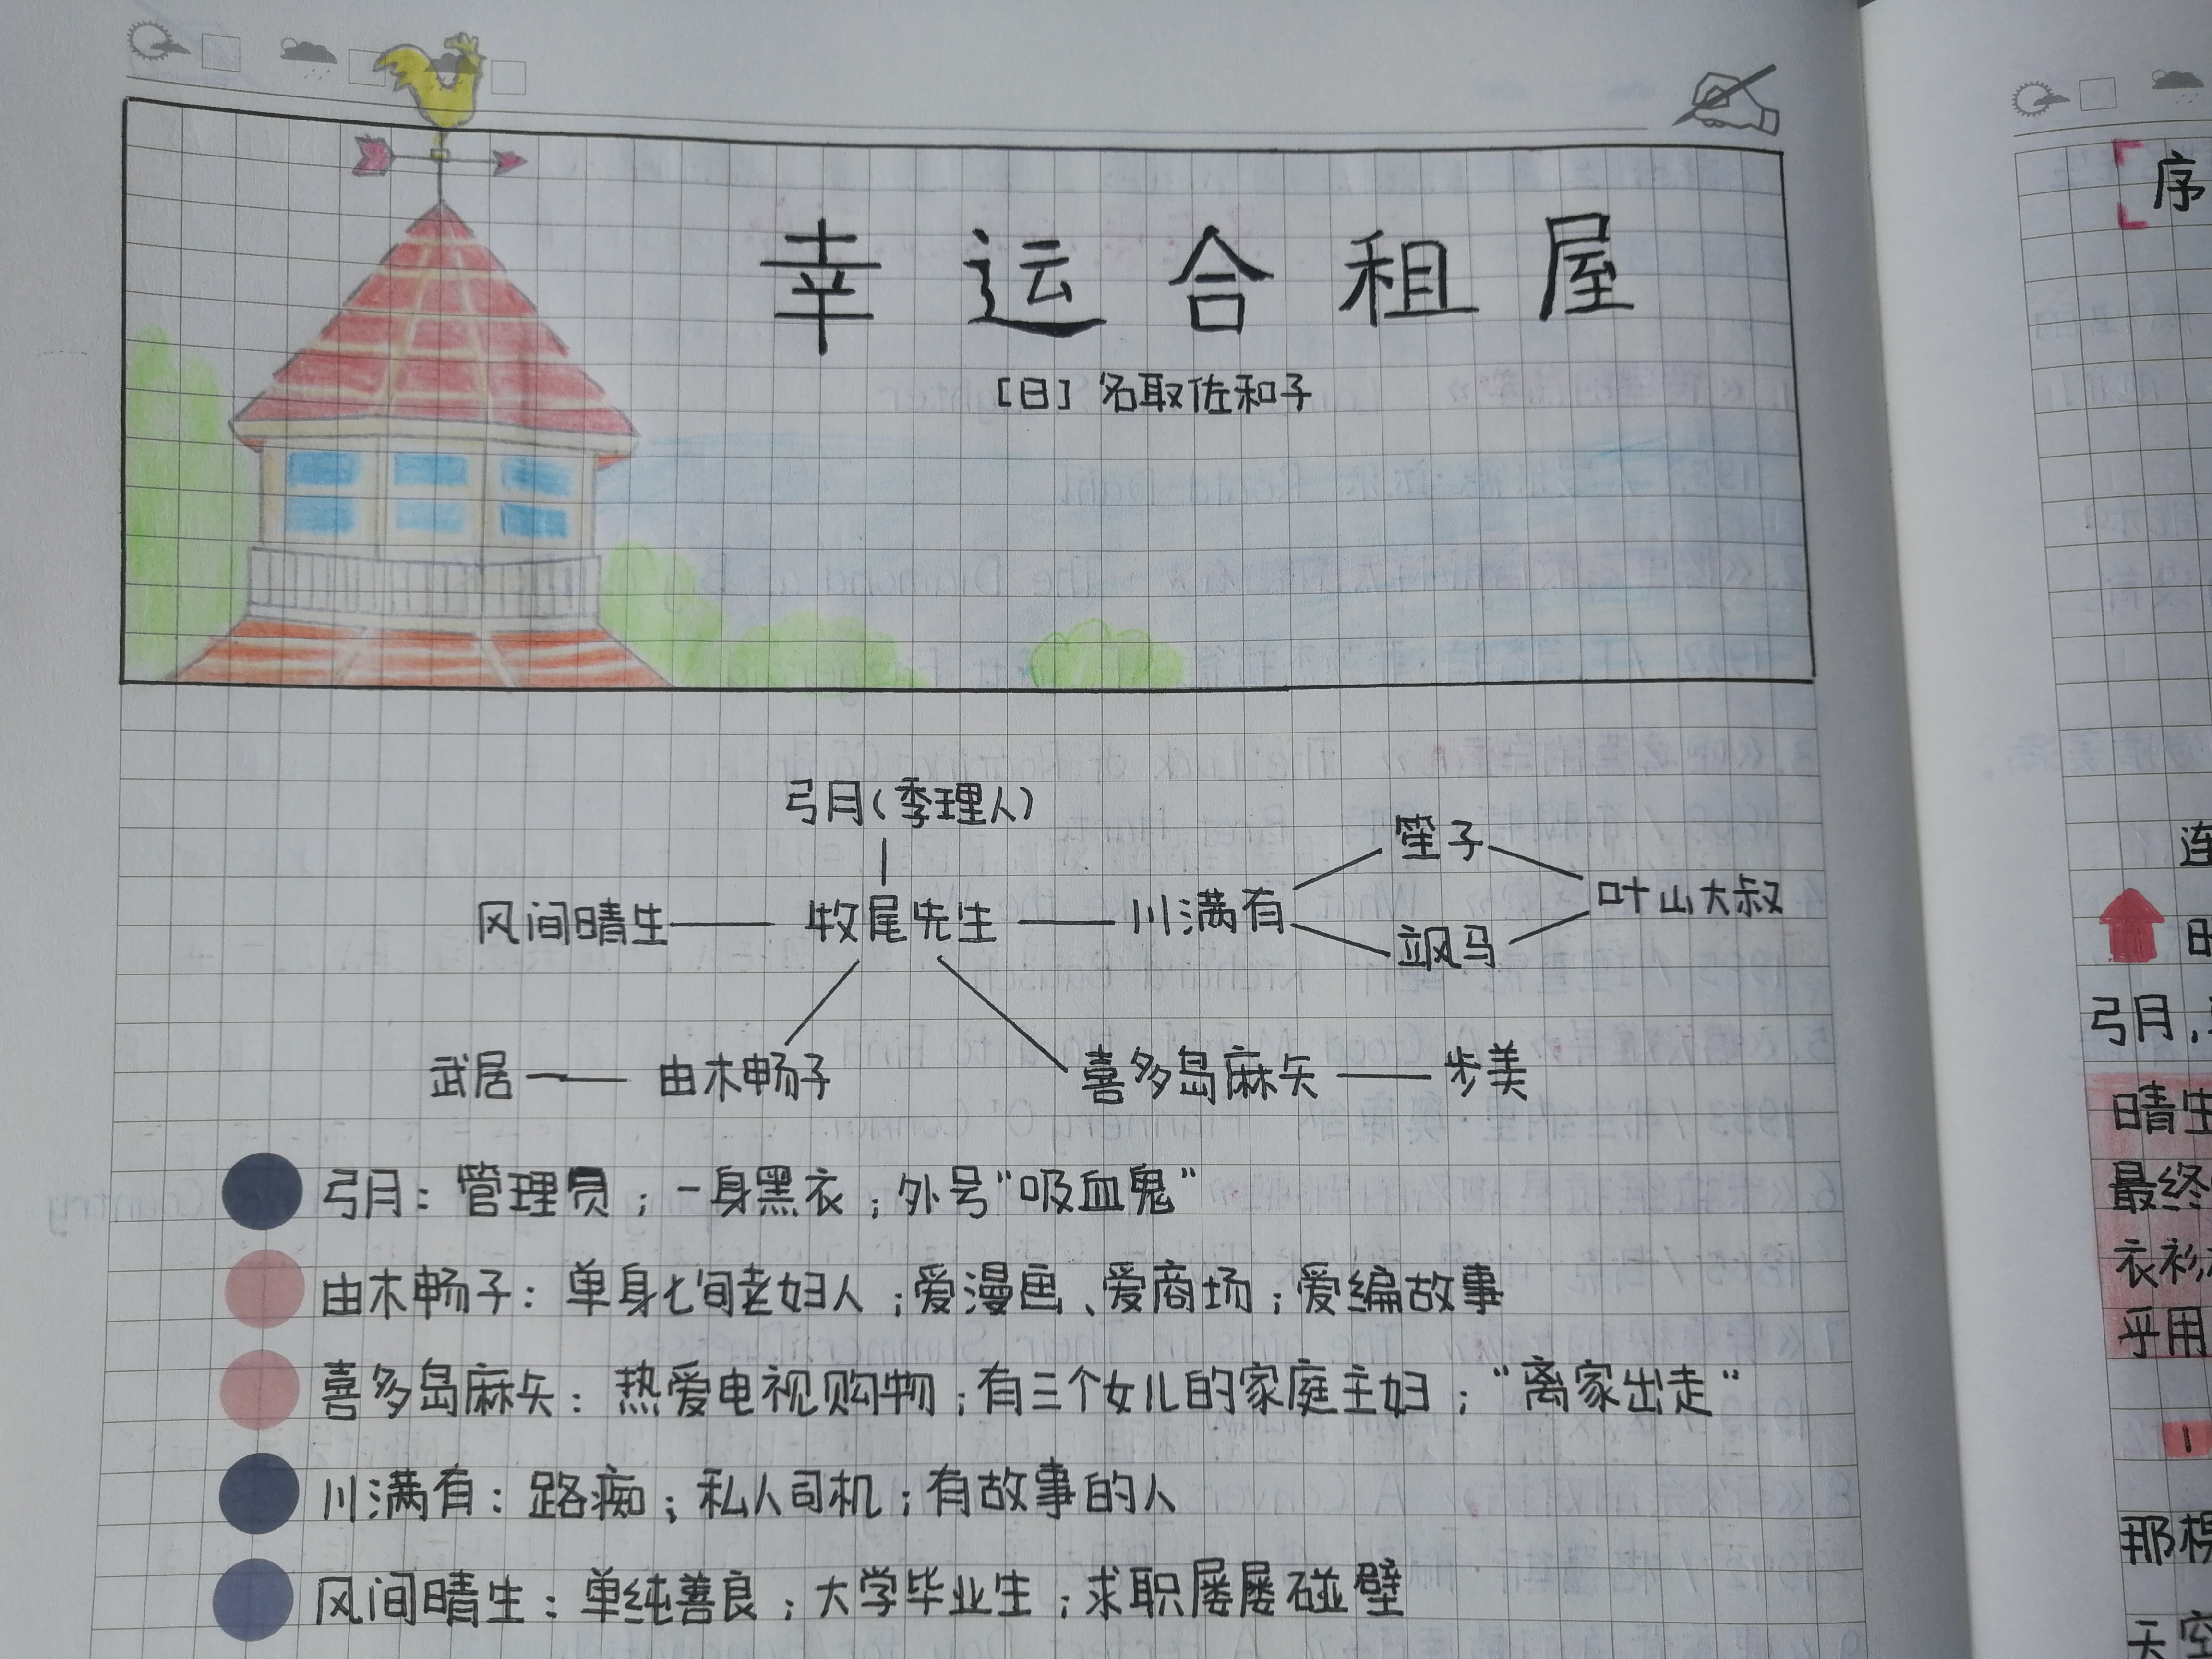 幸运合租屋
[日] 名取佐和子
弓月(季理人)
笙子
风间晴生 牧尾先生 川满有 叶山大叔
飒马
武居 由木畅子 喜多岛麻矢 步美
弓月：管理员；一身黑衣；外号“吸血鬼”
由木畅子：单身七旬老妇人；爱漫画、爱商场；爱编故事
喜多岛麻矢：热爱电视购物；有三个女儿的家庭主妇；“离家出走”
川满有：路痴；私人司机；有故事的人
风间晴生：单纯善良；大学毕业生；求职屡屡碰壁
序
连
弓月，
晴生
最终
衣衫
乎用
1
那
天空